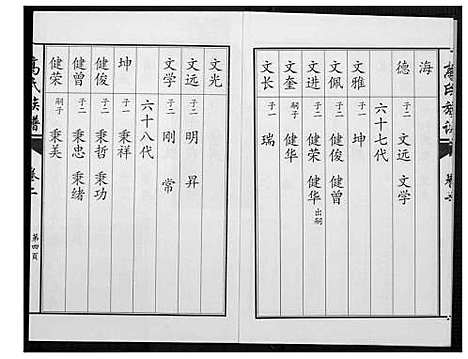 海
德 子二 文远 文学
六十七代
文雅 子一 坤
文佩 子二 健俊 健曾
文进 子二 健荣 健华 出嗣
文奎 嗣子 健华
文长 子一 瑞
文光
文远 子二 明 昇
文学 子二 刚 常
六十八代
坤 子一 秉祥
健俊 子二 秉哲 秉功
健曾 子二 秉忠 秉绪
健荣 嗣子 秉美
氏族譜
卷二
第四頁